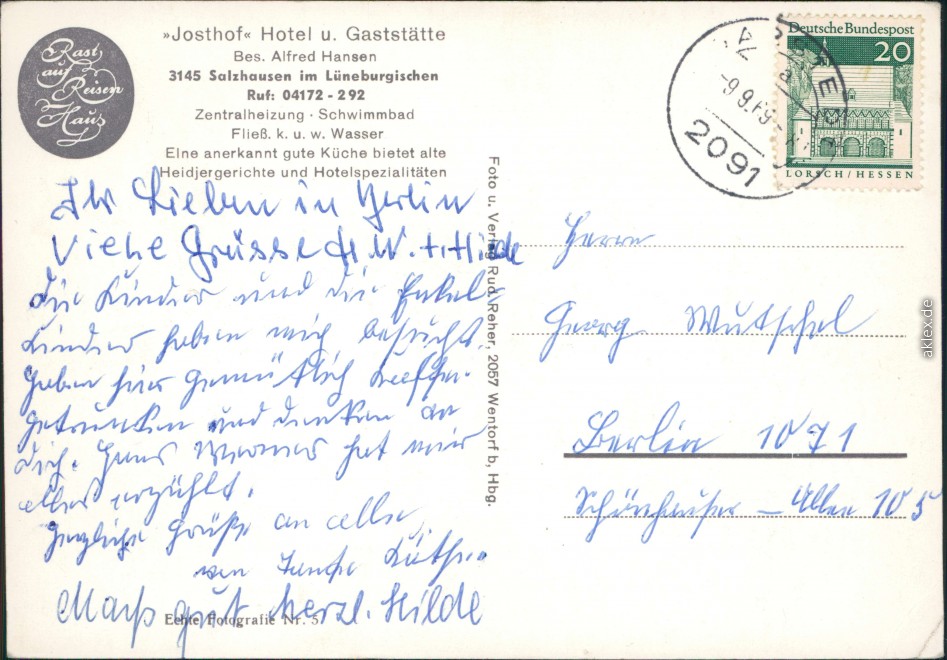 Rast
auf
Reisen
Haus
»Josthof« Hotel u. Gaststätte
Bes. Alfred Hansen
3145 Salzhausen im Lüneburgischen
Ruf: 04172 - 292
Zentralheizung · Schwimmbad
Fließ. k. u. w. Wasser
Eine anerkannt gute Küche bietet alte
Heidjergerichte und Hotelspezialitäten
Ihr Lieben in Berlin
Viele Grüsse H. W. + Hilde
die Kinder und die Enkel-
kinder haben mich besucht.
haben hier gemütlich Kaffee
getrunken und denken an
Dich. Hans Werner hat mir
alles erzählt.
Herzliche Grüße an alle
von Tante
Machs gut herzl. Hilde
Echte Fotografie Nr. 5
Foto u. Verlag Rud. Reher, 2057 Wentorf b. Hbg.
2091
-9.9.69
Deutsche Bundespost
20
LORSCH/HESSEN
Herrn
Georg Wutschel
Berlin 1071
Schönhauser-Allee 105
aklex.de